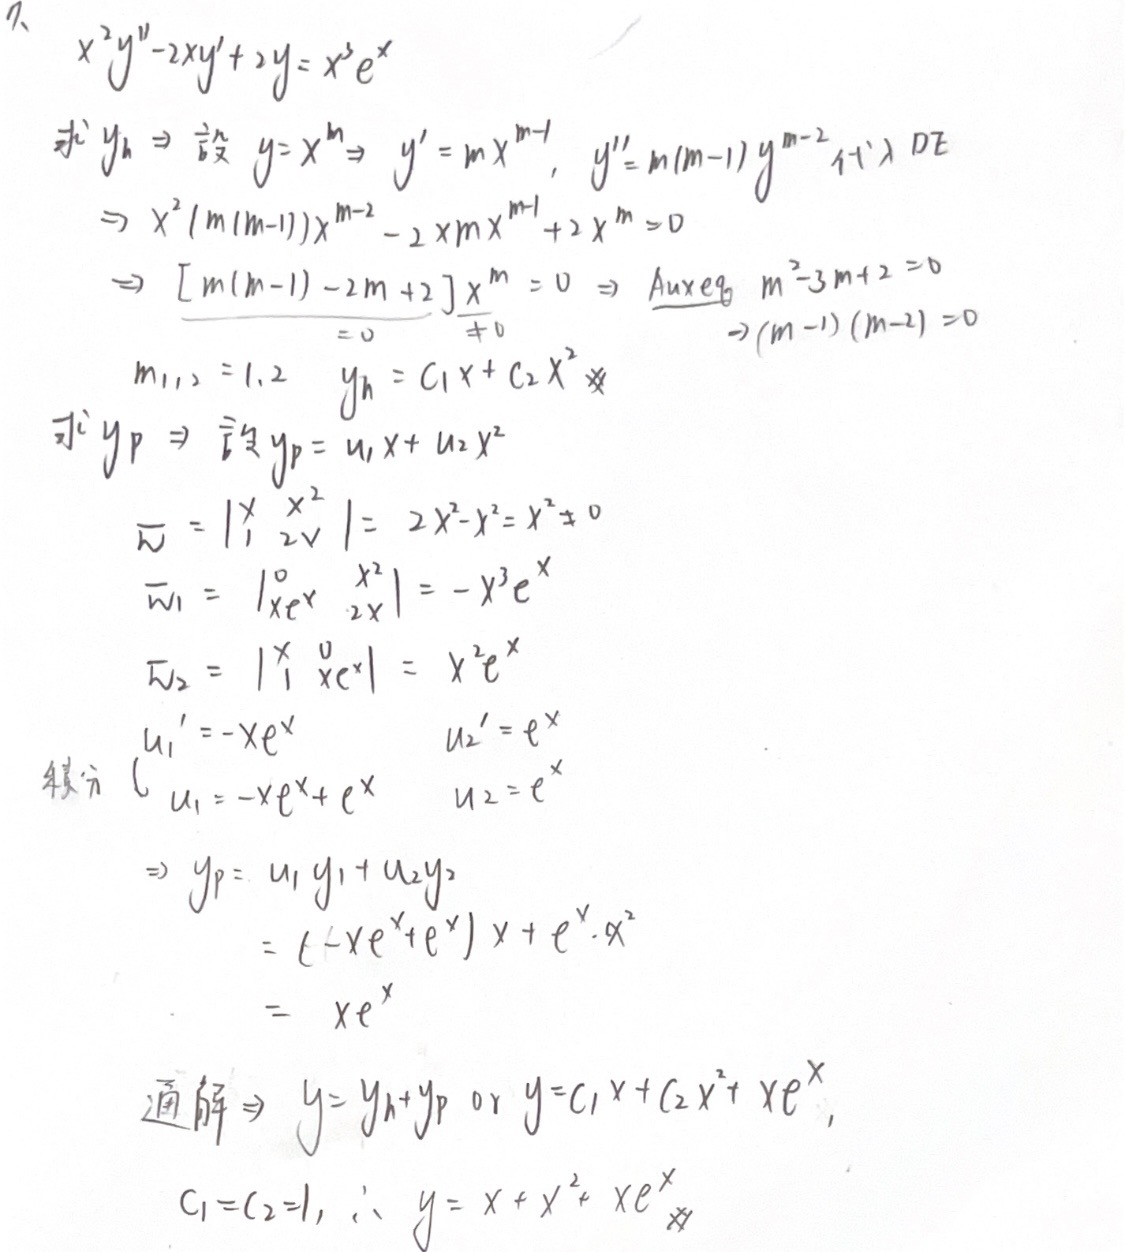 7、
x²y''-2xy'+2y=x³eˣ
求 yₕ ⇒ 設 y=xᵐ ⇒ y'=mxᵐ⁻¹, y''=m(m-1)yᵐ⁻² 代入 DE
⇒ x²(m(m-1))xᵐ⁻² - 2xmxᵐ⁻¹ + 2xᵐ = 0
⇒ [m(m-1)-2m+2]xᵐ = 0 ⇒ Aux eq m²-3m+2=0
=0 ≠0 → (m-1)(m-2)=0
m₁,₂ = 1,2 yₕ = C₁x+C₂x² ※
求 yₚ ⇒ 設 yₚ = u₁x + u₂x²
W = |x x²; 1 2x| = 2x²-x² = x² ≠ 0
W₁ = |0 x²; xeˣ 2x| = -x³eˣ
W₂ = |x 0; 1 xeˣ| = x²eˣ
u₁' = -xeˣ u₂' = eˣ
積分 ( u₁ = -xeˣ+eˣ u₂ = eˣ
⇒ yₚ = u₁y₁+u₂y₂
= (-xeˣ+eˣ)x + eˣ·x²
= xeˣ
通解 ⇒ y=yₕ+yₚ or y=C₁x+C₂x²+xeˣ,
C₁=C₂=1, ∴ y = x+x²+xeˣ ※